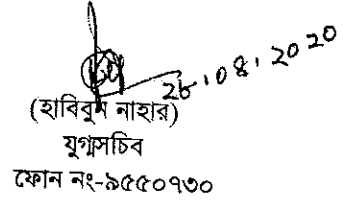 26.08.2020
(হাবিবুন নাহার)
যুগ্মসচিব
ফোন নং-৯৫৫০৭৩০